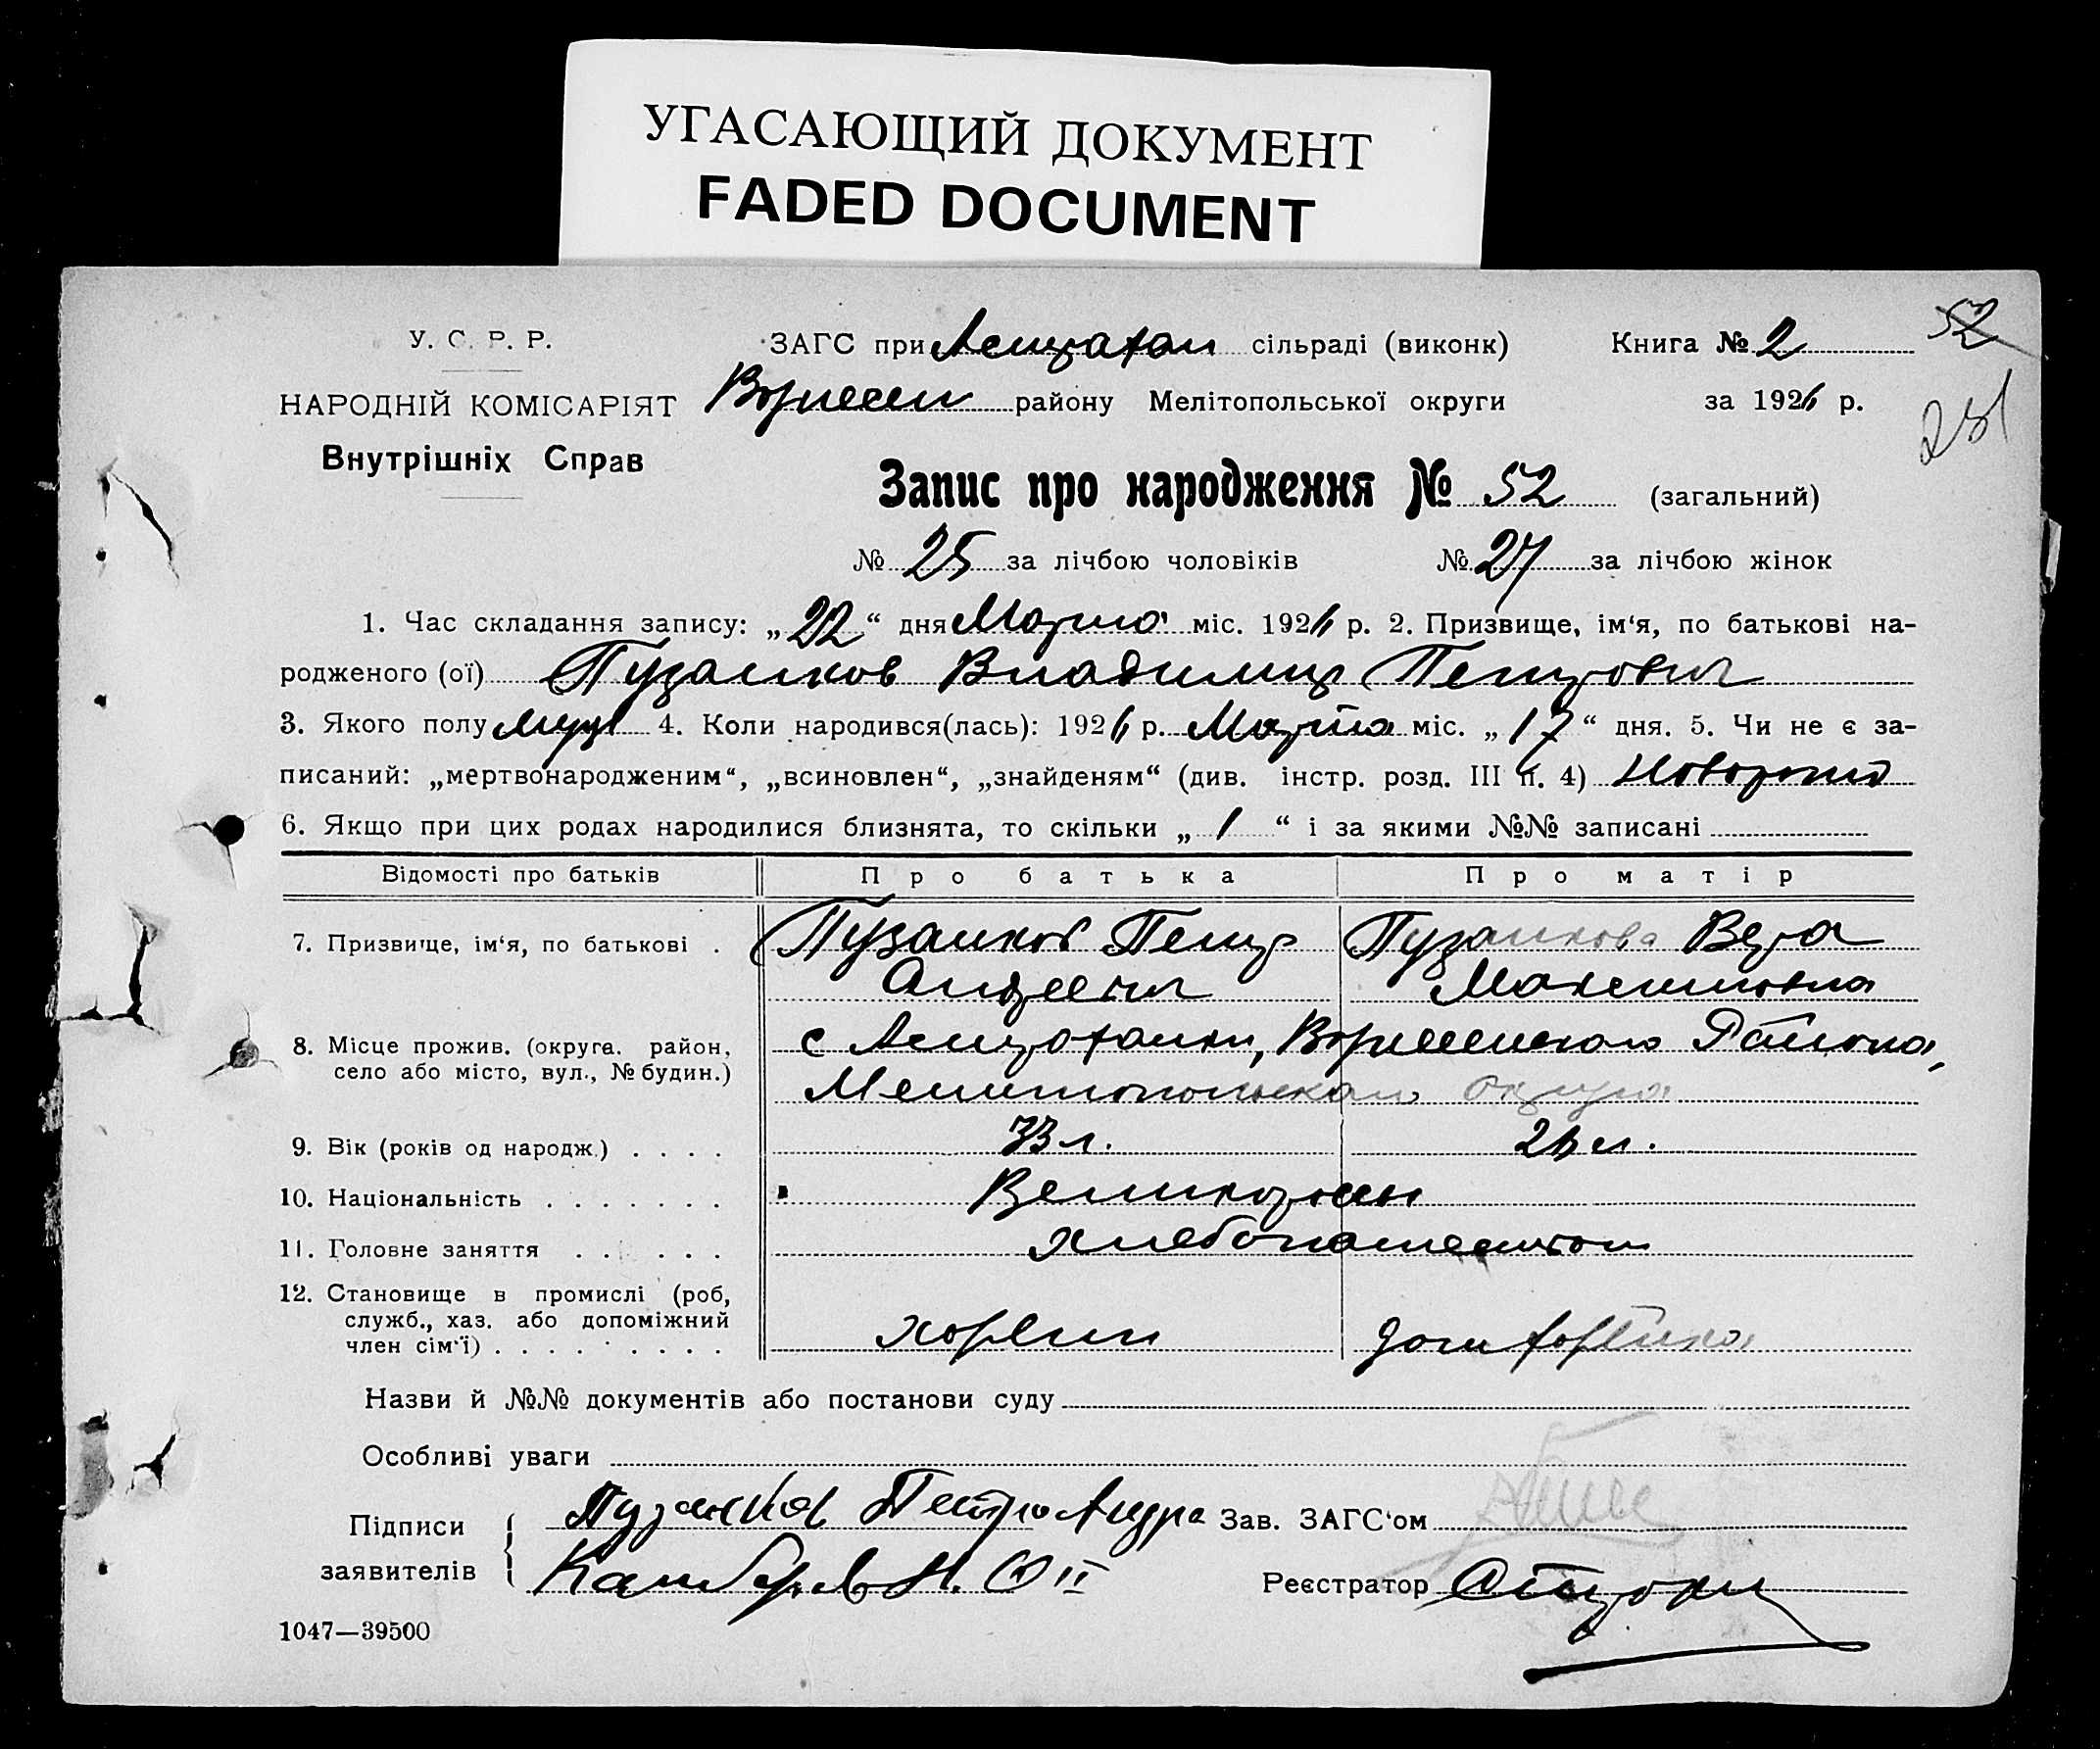 УГАСАЮЩИЙ ДОКУМЕНТ
FADED DOCUMENT
У. С. Р. Р.
НАРОДНІЙ КОМІСАРІЯТ
Внутрішніх Справ
ЗАГС при Астрахан сільраді (виконк)
Книга № 2
52
Вознесен району Мелітопольської округи
за 1926 р.
251
Запис про народження № 52 (загальний)
№ 25 за лічбою чоловіків № 27 за лічбою жінок
1. Час складання запису: „22“ дня Марта міс. 1926 р. 2. Призвище, ім‘я, по батькові на-
родженого (ої) Пузанков Владимир Петрович
3. Якого полу муж 4. Коли народився(лась): 1926 р. Марта міс. „17“ дня. 5. Чи не є за-
писаний: „мертвонародженим“, „всиновлен“, „знайденям“ (див. інстр. розд. III п. 4)
6. Якщо при цих родах народилися близнята, то скільки „1“ і за якими №№ записані
Відомості про батьків Про батька Про матір
7. Призвище, ім‘я, по батькові . Пузанков Петр Пузанкова Вера
Андреевич Максимовна
8. Місце прожив. (округа. район, село або місто, вул., № будин.) с Астраханки, Вознесенского Района,
Мелитопольского Округа
9. Вік (років од народж.) . . . . 33 л. 26 л.
10. Національність . . . . . . . Великороссы
11. Головне заняття . . . . . . хлебопашеством
12. Становище в промислі (роб, служб., хаз. або допоміжний член сім‘ї) . . . . . . . . . хозяин дом хозяйка
Назви й №№ документів або постанови суду
Особливі уваги
Підписи заявителів Пузанков Петро Андре
Зав. ЗАГС‘ом
Реєстратор
1047—39500